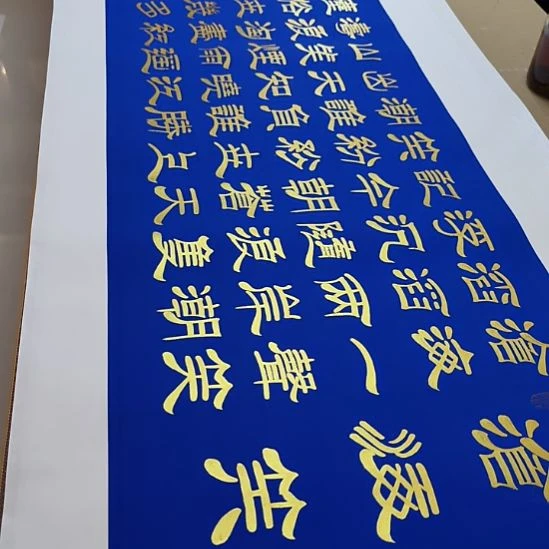 滄海笑
滄海一聲笑
滔滔兩岸潮
浮沉隨浪隻
記今朝蒼天
笑紛紛世上
潮誰負誰勝
出天知曉江
山笑煙雨遙
濤浪淘盡紅
塵俗